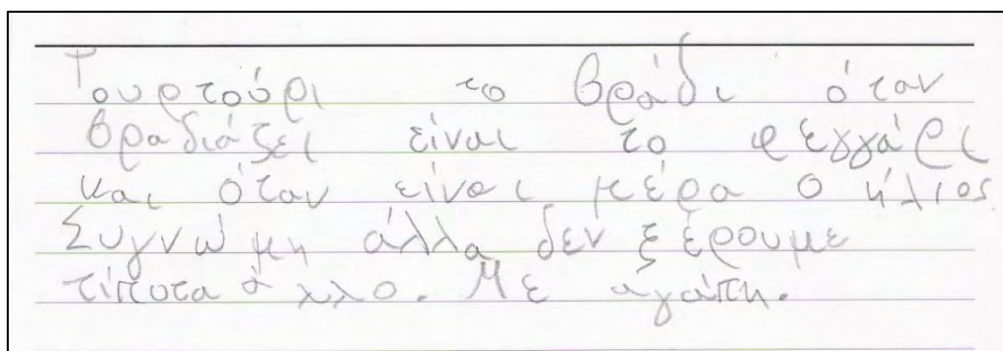 Τουρτούρι το βράδι όταν
βραδιάζει είναι το φεγγάρι
και όταν είναι μέρα ο ήλιος.
Συγνώμη άλλα δεν ξέρουμε
τίποτα άλλο. Με αγάπη.